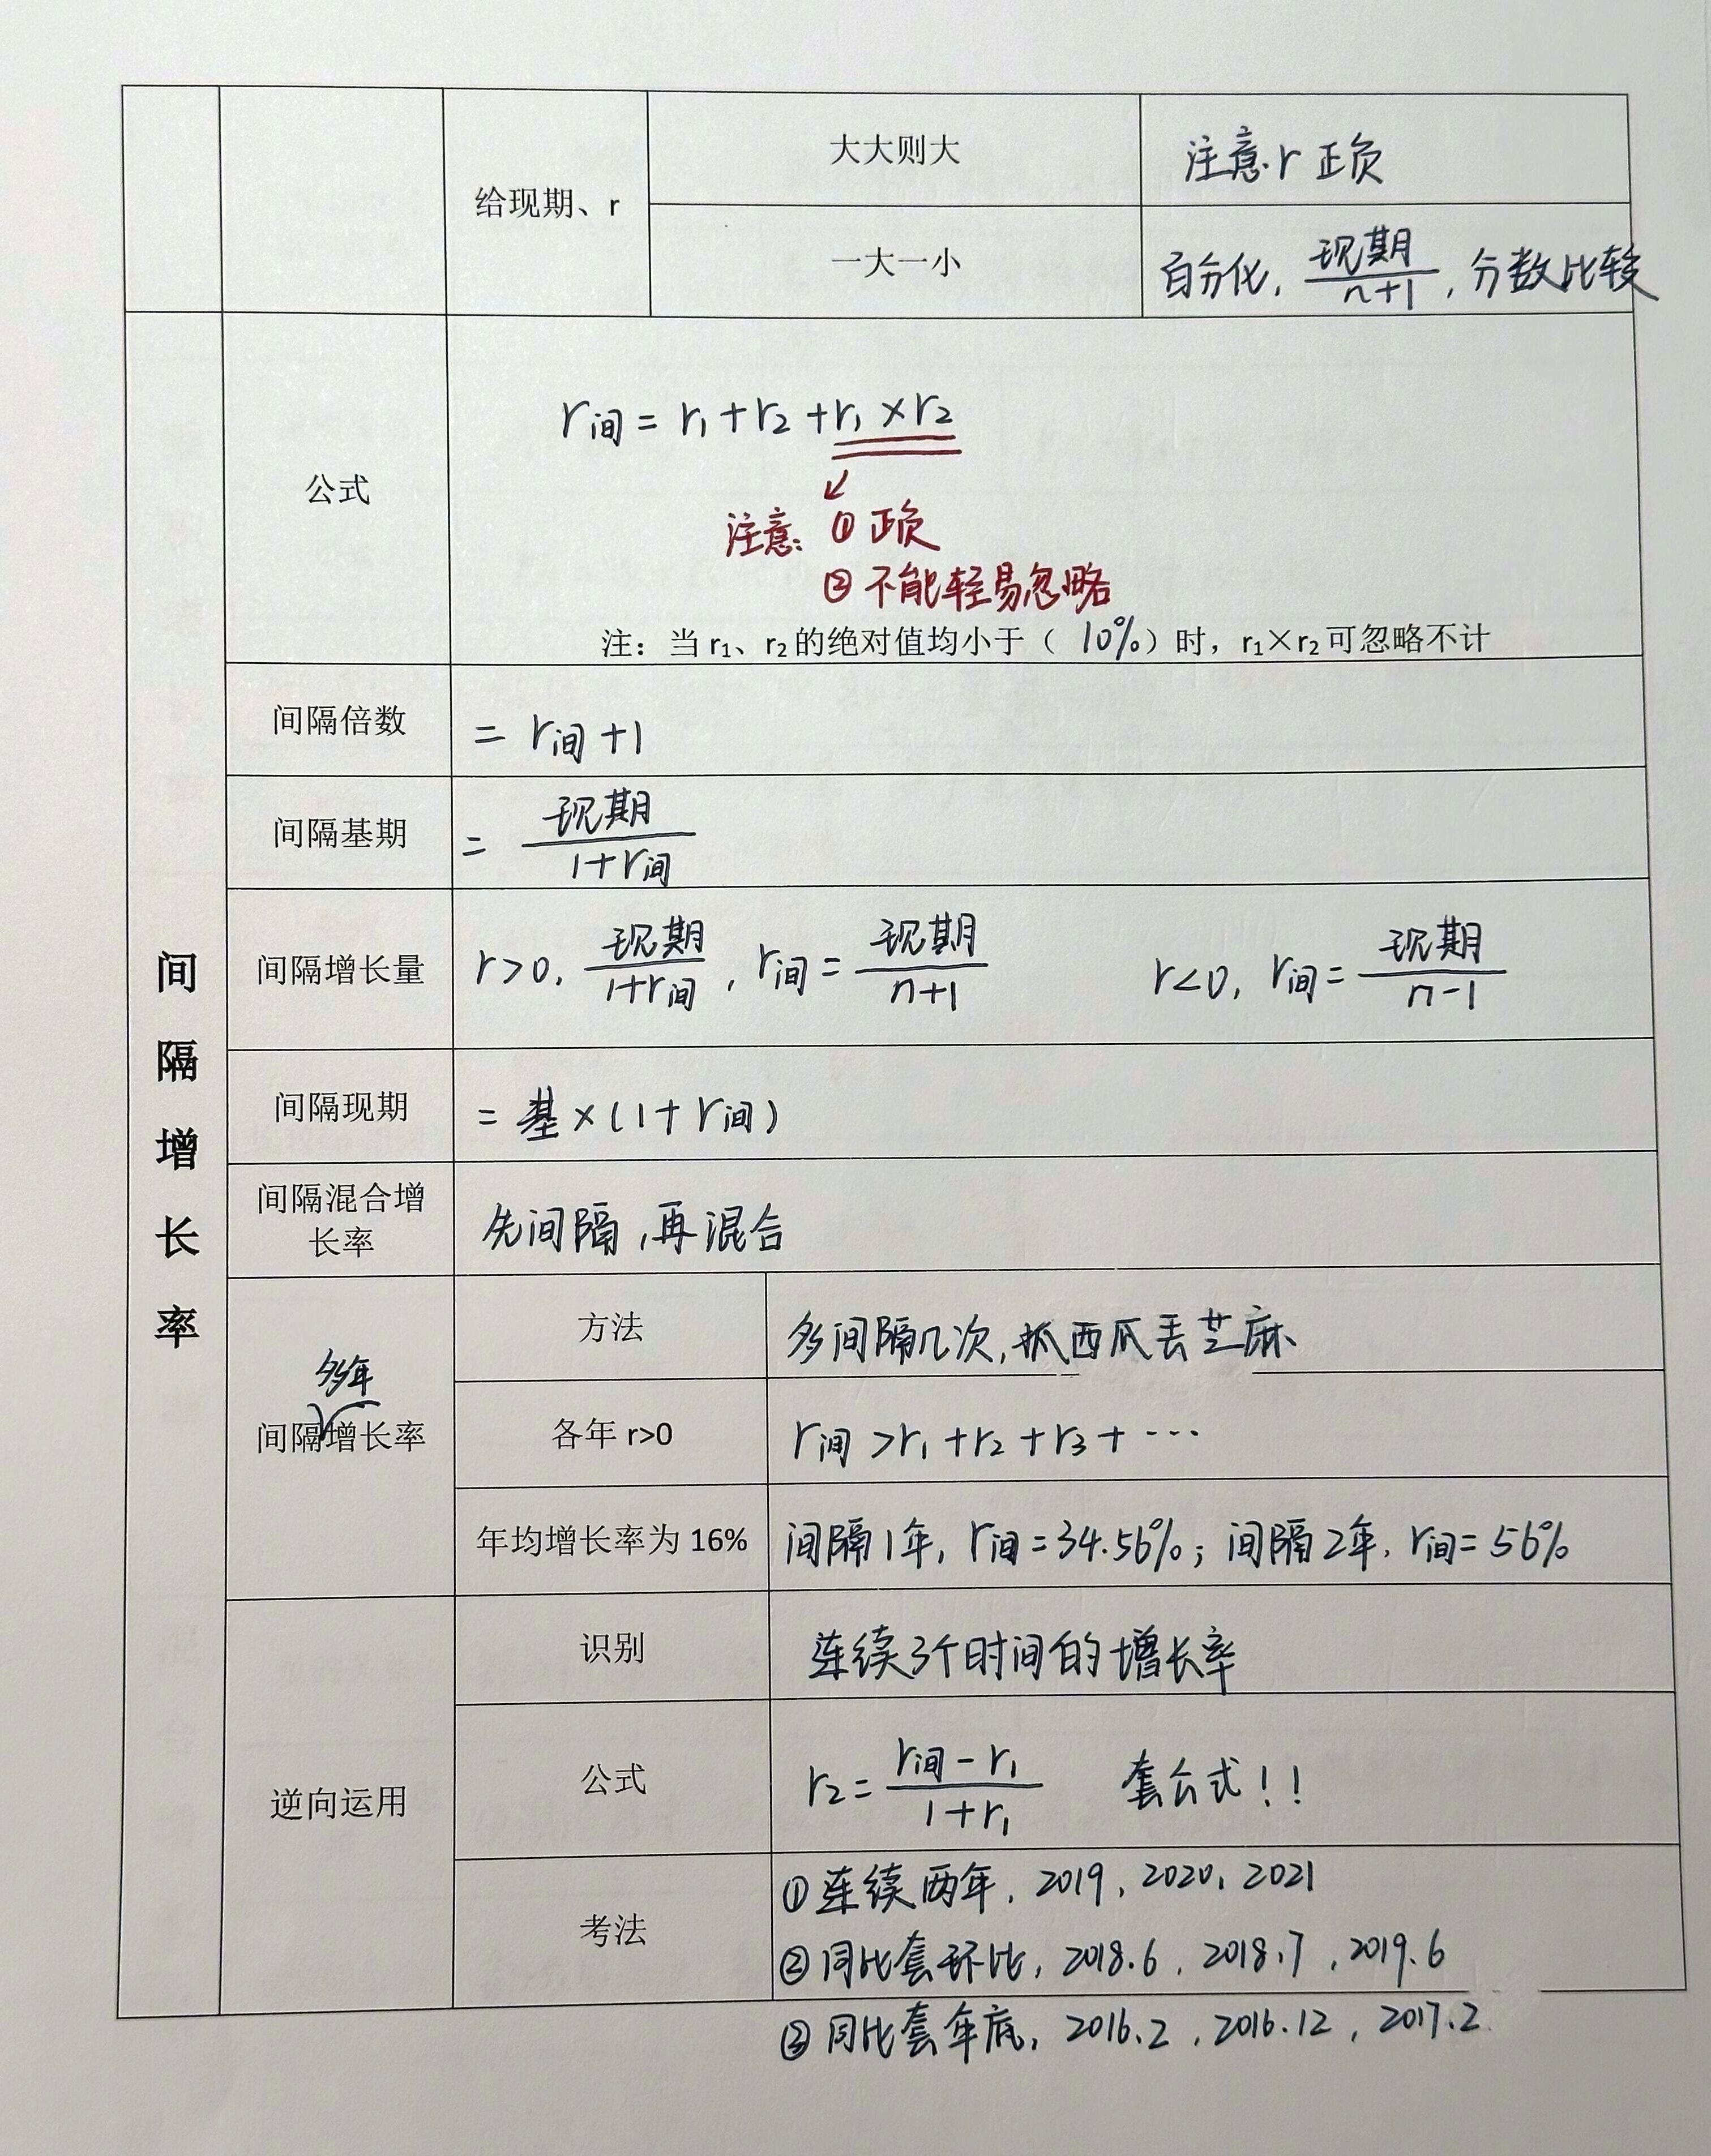 给现期、r
大大则大
注意r正负
一大一小
百分化, 现期/n+1, 分数比较
间隔增长率
公式
r间 = r₁+r₂+r₁×r₂
↙
注意: ①正负
②不能轻易忽略
注: 当 r₁、r₂的绝对值均小于（10%）时，r₁×r₂可忽略不计
间隔倍数
= r间+1
间隔基期
= 现期/1+r间
间隔增长量
r>0, 现期/1+r间, r间=现期/n+1 r<0, r间=现期/n-1
间隔现期
= 基×(1+r间)
间隔混合增
长率
先间隔,再混合
多年
间隔增长率
方法
多间隔几次,抓西瓜丢芝麻
各年 r>0
r间>r₁+r₂+r₃+…
年均增长率为 16%
间隔1年, r间=34.56%; 间隔2年, r间=56%
逆向运用
识别
连续3个时间的增长率
公式
r₂=r间-r₁/1+r₁ 套公式!!
考法
①连续两年, 2019, 2020, 2021
②同比套环比, 2018.6, 2018.7, 2019.6
③同比套年底, 2016.2, 2016.12, 2017.2